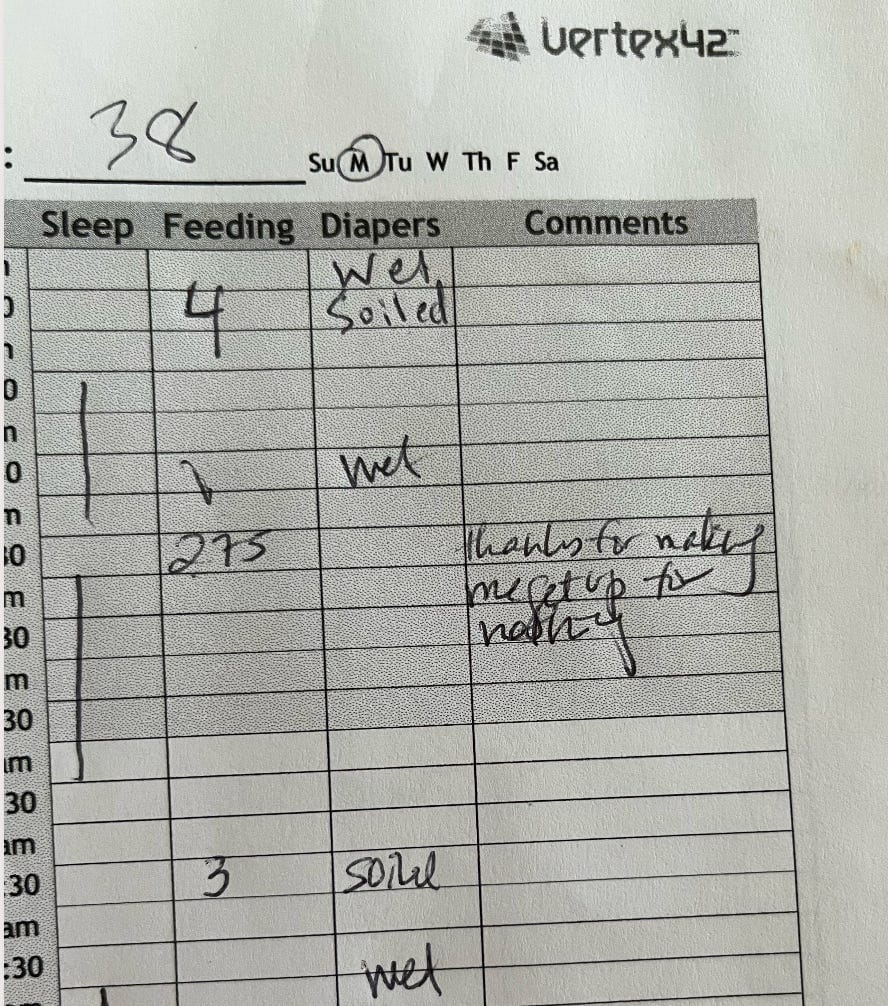 vertex42™
: 38 Su M Tu W Th F Sa
Sleep Feeding Diapers Comments
Wet
4 Soiled
0
wet
0
m
275 Thanks for making
30
m me get up for
30 nothing
m
30
am
30
am
30 3 Soiled
am
:30 wet